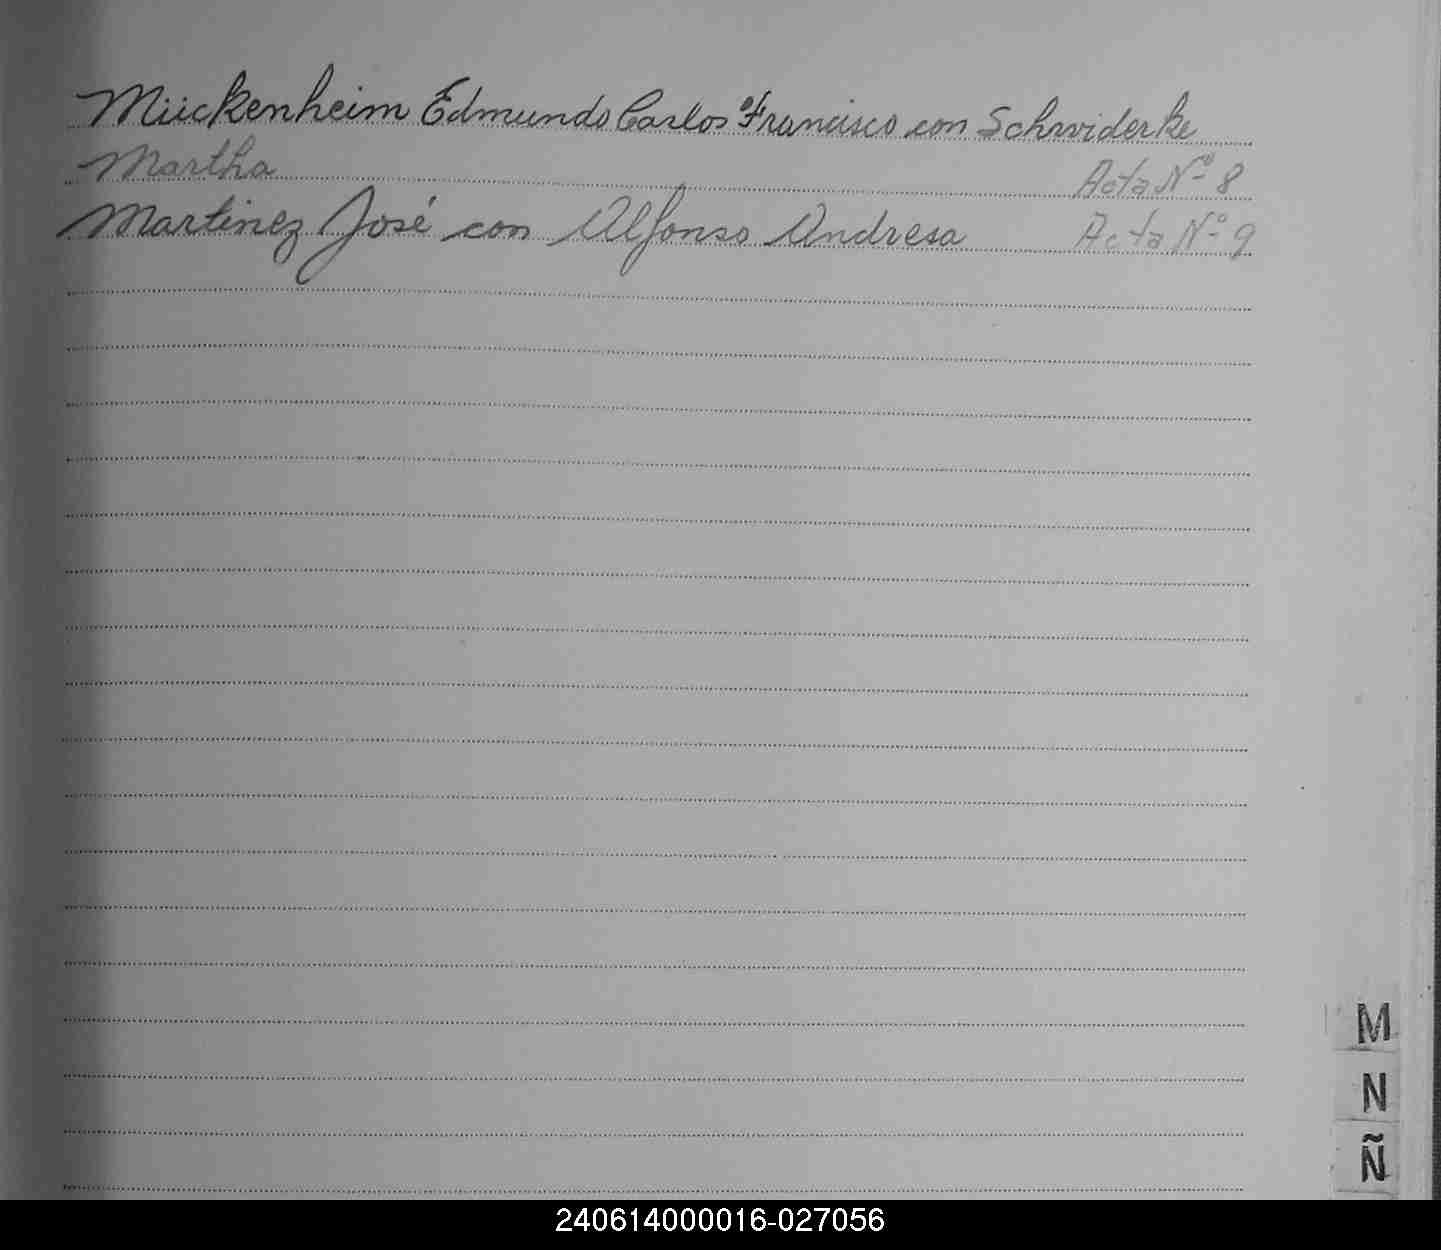 Mückenheim Edmundo Carlos Francisco con Schwiderke
Martha Acta Nº 8
Martinez José con Alfonso Andresa Acta Nº 9
M
N
Ñ
240614000016-027056